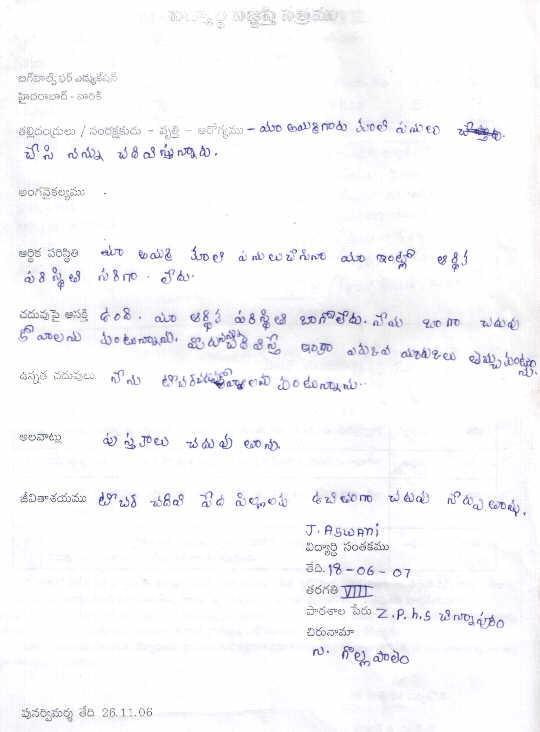 విద్యార్థి విజ్ఞప్తి పత్రము
బిగ్‌హెల్ప్ ఫర్ ఎడ్యుకేషన్
హైదరాబాద్ - వారికి
తల్లిదండ్రులు / సంరక్షకుడు - వృత్తి - ఆరోగ్యము - మా అమ్మగారు కూలి పనులు
చేసి నన్ను చదివిస్తున్నారు.
అంగవైకల్యము -
ఆర్థిక పరిస్థితి మా అమ్మ కూలి పనులు మా ఇంట్లో ఆర్థిక
పరిస్థితి సరిగా లేదు.
చదువుపై ఆసక్తి ఉంది. మా ఆర్థిక పరిస్థితి బాగోలేదు. నేను బాగా చదువు
కోవాలను కుంటున్నాను. ఇంకా
ఉన్నత చదువులు నేను టీచర్ కుంటున్నాను.
అలవాట్లు పుస్తకాలు చదువుతాను.
జీవితాశయము టీచర్ చదివి పేద పిల్లలకు ఉచితంగా చదువు నేర్పుతాను.
J. ASWANI
విద్యార్థి సంతకము
తేది. 18-06-07
తరగతి VIII
పాఠశాల పేరు Z.P.h.S చిన్నాపురం
చిరునామా
న. గొల్లపాలెం
పునర్విమర్శ తేది 26.11.06